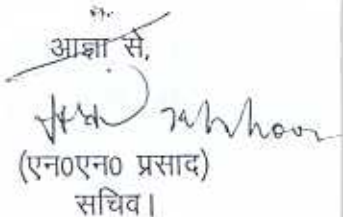 आज्ञा से,
(एन0एन0 प्रसाद)
सचिव।